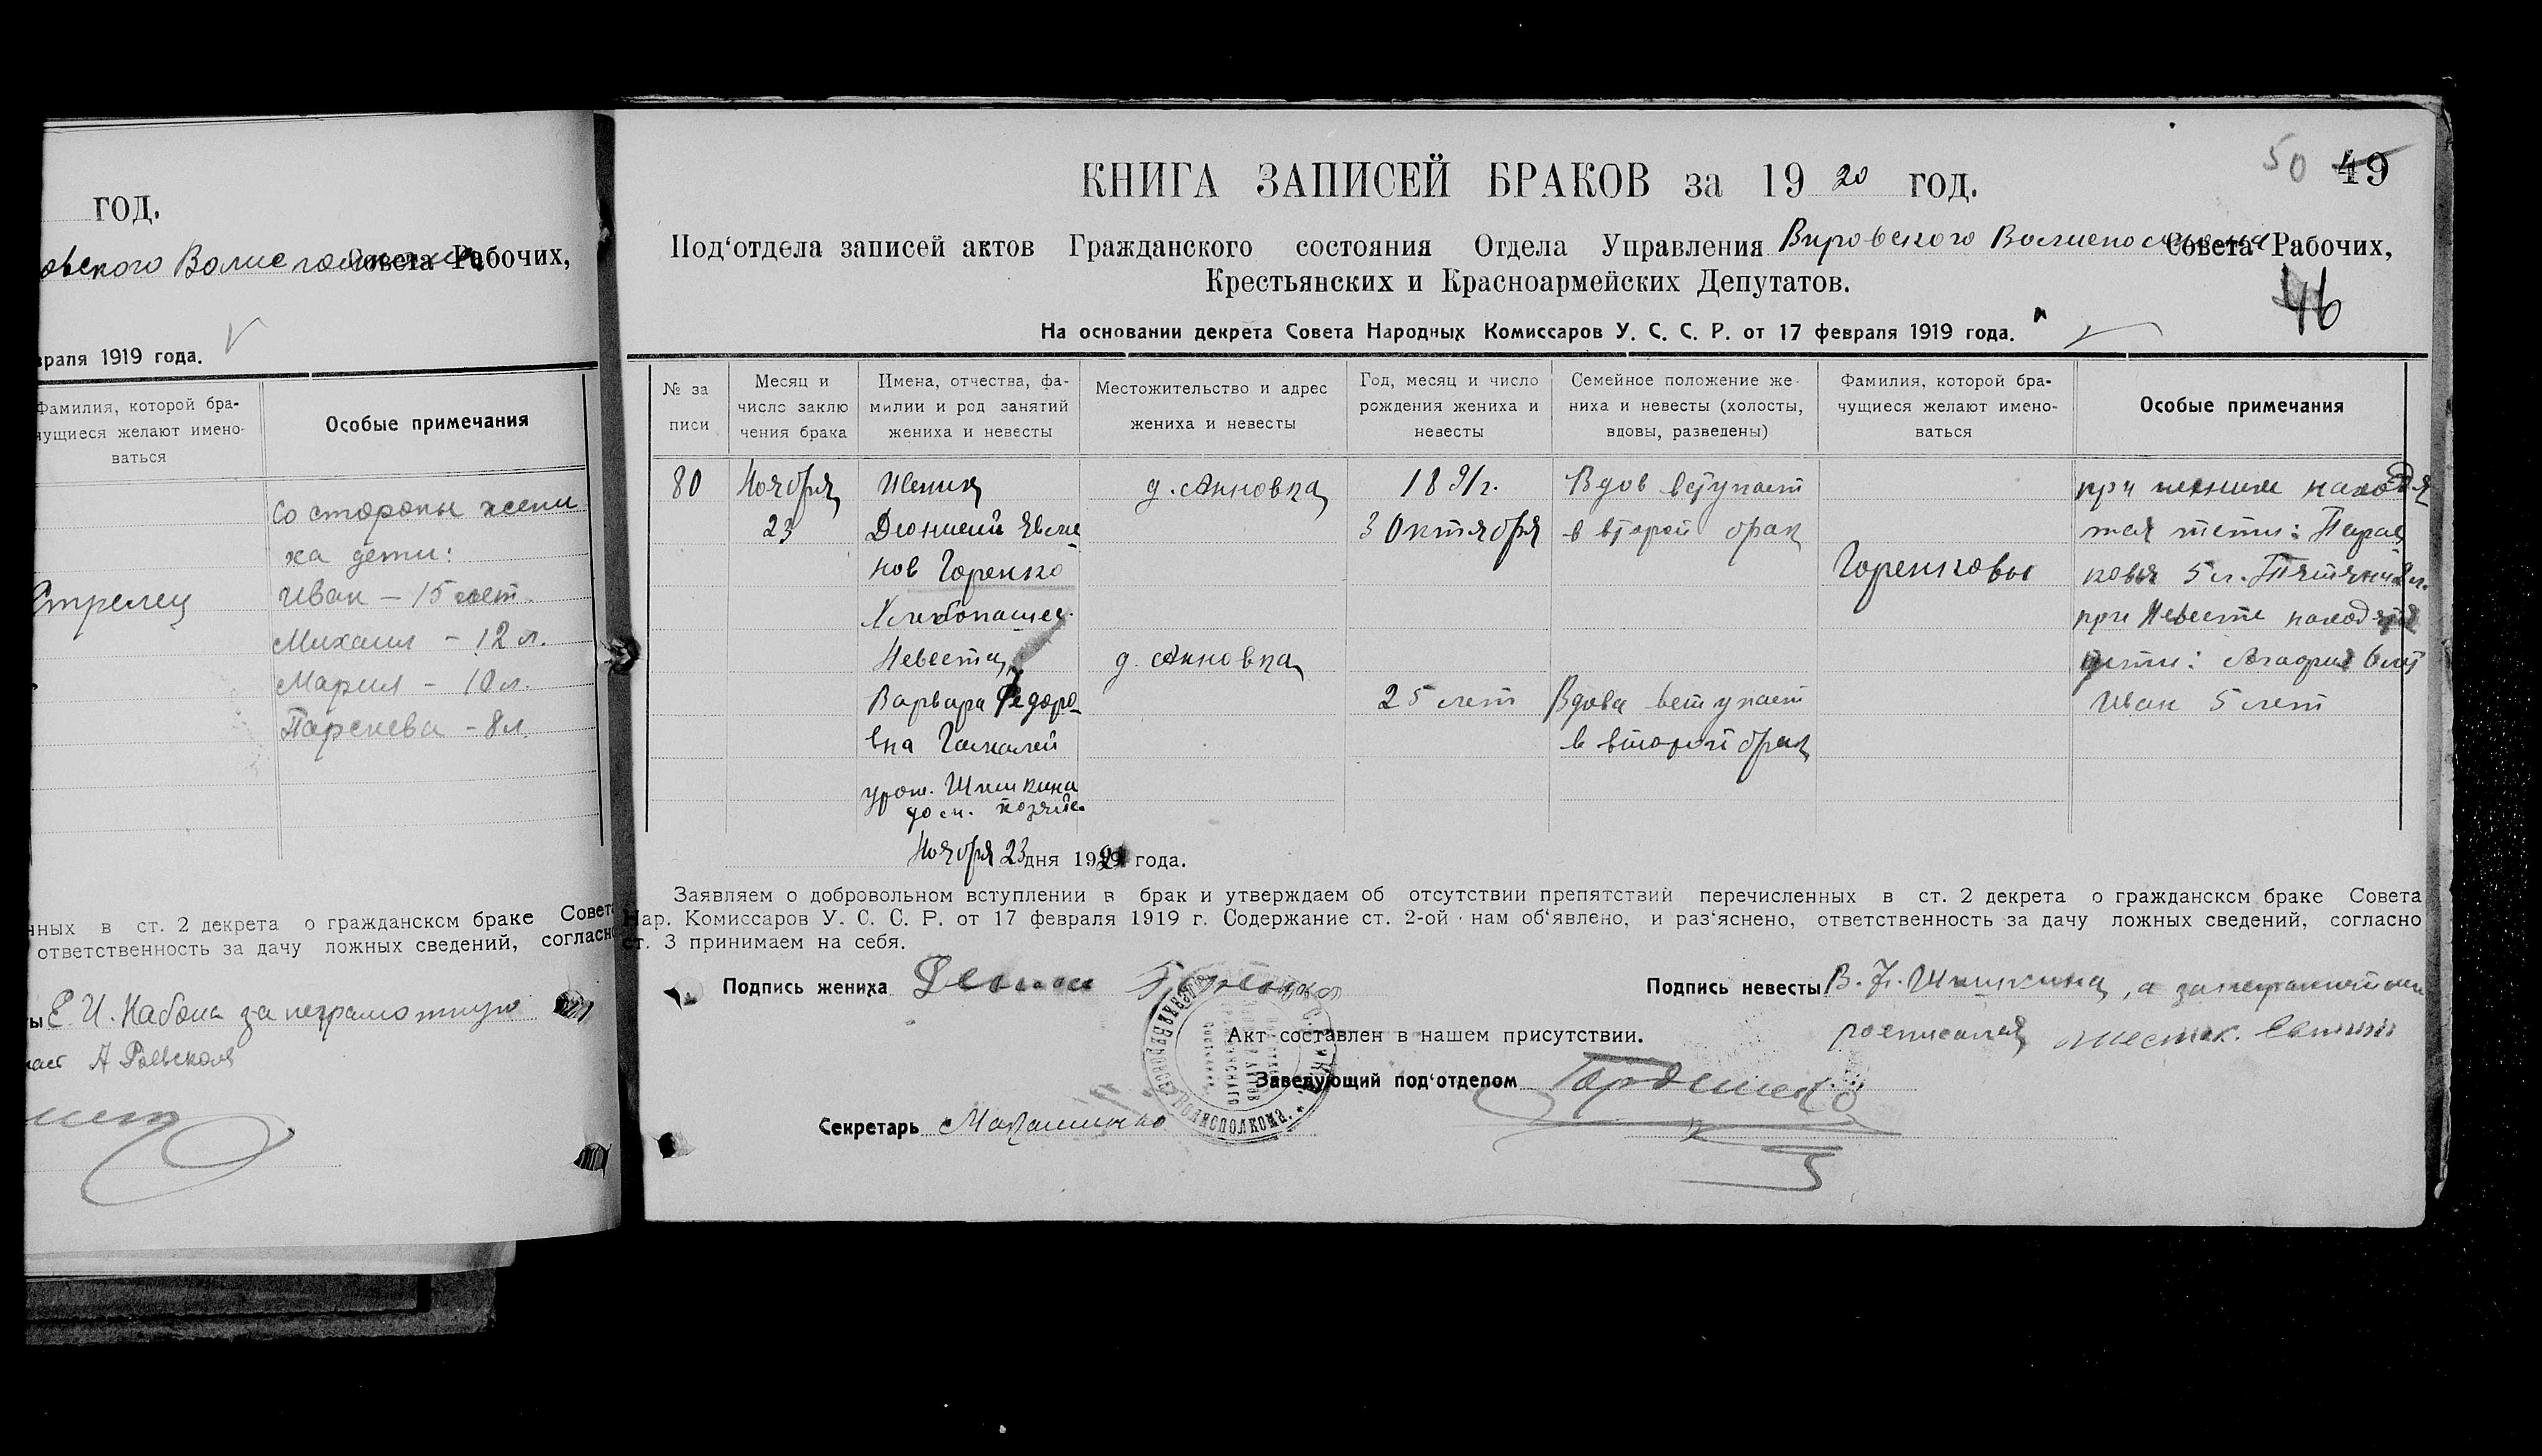 ГОД.
овского Волисполкома Совета Рабочих,
враля 1919 года.
Фамилия, которой бра-
чущиеся желают имено-
ваться
Особые примечания
Стрелец
Со стороны жени
ха дети:
Иван — 15 лет.
Михаил — 12 л.
Мария — 10 л.
Парскева — 8 л.
нных в ст. 2 декрета о гражданском браке Совета
ответственность за дачу ложных сведений, согласно
ты Е. И. за неграмотную
50 49
КНИГА ЗАПИСЕЙ БРАКОВ за 1920 год.
Под‘отдела записей актов Гражданского состояния Отдела Управления Вировского Волисполкома Совета Рабочих,
Крестьянских и Красноармейских Депутатов.
46
На основании декрета Совета Народных Комиссаров У. С. С. Р. от 17 февраля 1919 года.
№ за
писи
Месяц и
число заклю
чения брака
Имена, отчества, фа-
милии и род занятий
жениха и невесты
Местожительство и адрес
жениха и невесты
Год, месяц и число
рождения жениха и
невесты
Семейное положение же-
ниха и невесты (холосты,
вдовы, разведены)
Фамилия, которой бра-
чущиеся желают имено-
ваться
Особые примечания
80
Ноября
23
Жених
Дионисий
нов Горенко
Хлебопашец
Невеста
Варвара Федоро
вна
урож. Шишкина
дом. хозяйс.
д. Анновка
д. Анновка
1891г.
3 Октября
25 лет
Вдов вступает
в второй брак
Вдова вступает
в второй брак
Горенковы
при женихе находя
тся дети: Парас
ковья 5 л. Татьяна 2 л.
при Невесте находятся
дети: 6 лет
Иван 5 лет
Ноября 23 дня 19 года.
Заявляем о добровольном вступлении в брак и утверждаем об отсутствии препятствий перечисленных в ст. 2 декрета о гражданском браке Совета
Нар. Комиссаров У. С. С. Р. от 17 февраля 1919 г. Содержание ст. 2-ой нам об‘явлено, и раз‘яснено, ответственность за дачу ложных сведений, согласно
ст. 3 принимаем на себя.
Подпись жениха Горенко
Подпись невесты В. Ф. Шишкина, а за неграмотной
росписался
Акт составлен в нашем присутствии.
Заведующий под‘отделом Гордиенко
Секретарь